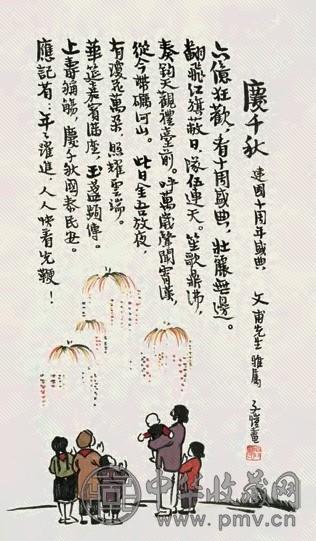 慶千秋 建國十周年盛典
文甫先生雅屬 子愷畫
六億狂歡,看十周盛典,壯麗無邊。
翻飛紅旗蔽日,隊伍連天。笙歌鼎沸,
奏鈞天觀禮臺前。呼萬歲聲聞霄漢,
從今帶礪河山。此日金吾放夜,
有瓊花萬朵,照耀雲端。
華筵嘉賓滿座,玉盞頻傳。
上壽稱觴,慶千秋國泰民安。
應記着:年々躍進,人人快着先鞭!
中华收藏网
www.pmv.cn